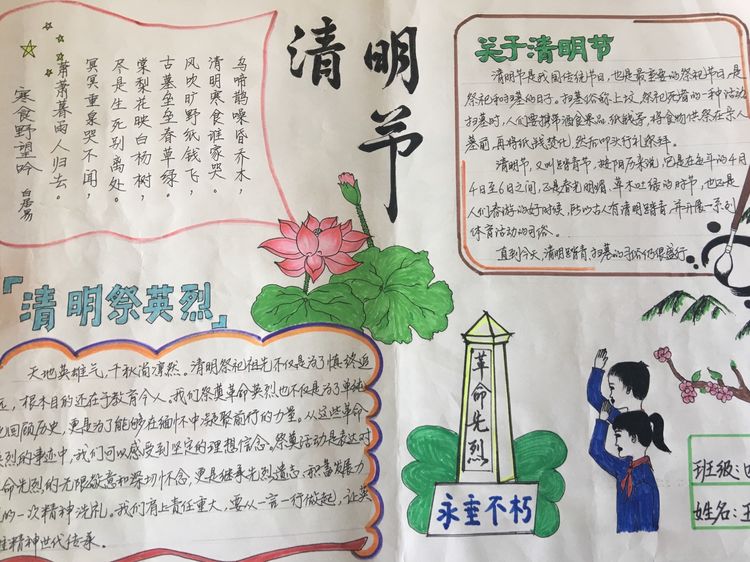 清明节
寒食野望吟
白居易
乌啼鹊噪昏乔木，
清明寒食谁家哭。
风吹旷野纸钱飞，
古墓垒垒春草绿。
棠梨花映白杨树，
尽是生死别离处。
冥冥重泉哭不闻，
萧萧暮雨人归去。
关于清明节
清明节是我国传统节日，也是最重要的祭祀节日，是
祭祀和扫墓的日子。扫墓俗称上坟，祭祀死者的一种活动
扫墓时，人们要携带酒食果品、纸钱等，将食物供祭在亲人
墓前，再将纸钱焚化，然后叩头行礼祭拜。
清明节，又叫踏青节，按阳历来说，它是在每年的4月
4日至6日之间，正是春光明媚、草木吐绿的时节，也正是
人们春游的好时候，所以古人有清明踏青，并开展一系列
体育活动的习俗。
直到今天，清明踏青，扫墓的习俗仍很盛行
「清明祭英烈」
天地英雄气，千秋尚凛然。清明祭祀祖先不仅是为了慎终追
远，根本目的还在于教育今人。我们祭奠革命英烈也不仅是为了单纯
回顾历史，更是为了能够在缅怀中凝聚前行的力量。从这些革命
烈的事迹中，我们可以感受到坚定的理想信念。祭奠活动是表达对
命先烈的无限敬意和深切怀念，更是继承先烈遗志、积蓄发展力
的一次精神洗礼。我们肩上责任重大，要从一言一行做起，让英
雄精神世代传承。
革命先烈
永垂不朽
班级：
姓名：